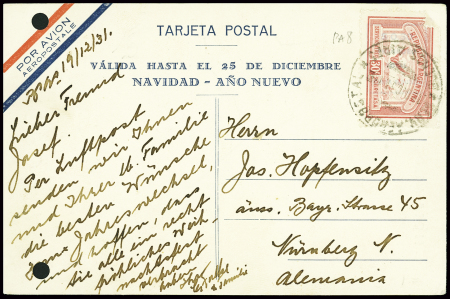 TARJETA POSTAL
PAR AVION
AEROPOSTALE
VÁLIDA HASTA EL 25 DE DICIEMBRE
NAVIDAD - AÑO NUEVO
PA8
19/12/31.
Lieber Freund
Josef.
Per Luftpost
senden wir Ihnen
und Ihrer lb. Familie
die besten Wünsche
zum Jahreswechsel,
und hoffen, dass
Sie alle ein recht
fröhliches Weih-
nachtsfest
verbracht
haben.
Herrn
Jos. Hopfensitz
äuss. Bayr. Strasse 45
Nürnberg N.
Alemania